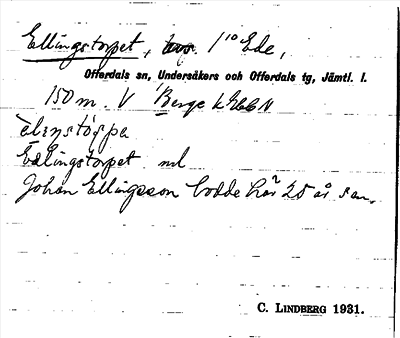 Ellingstorpet, 1¹⁰ Ede,
Offerdals sn, Undersåkers och Offerdals tg, Jämtl. l.
150 m. V Berge k
Ellingstorpet nd
Johan Ellingsson bodde här 25 år sen.
C. LINDBERG 1931.